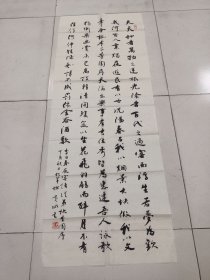 夫天地者萬物之逆旅光陰者百代之過客而浮生若夢為歡
幾何古人秉燭夜遊良有以也況陽春召我以煙景大塊假我以文
章會桃李之芳園序天倫之樂事群季俊秀皆為惠連吾人詠歌
獨慚康樂幽賞未已高談轉清開瓊筵以坐花飛羽觴而醉月不有
佳作何伸雅懷如詩不成罰依金谷酒數
李白春夜宴從弟桃李園序